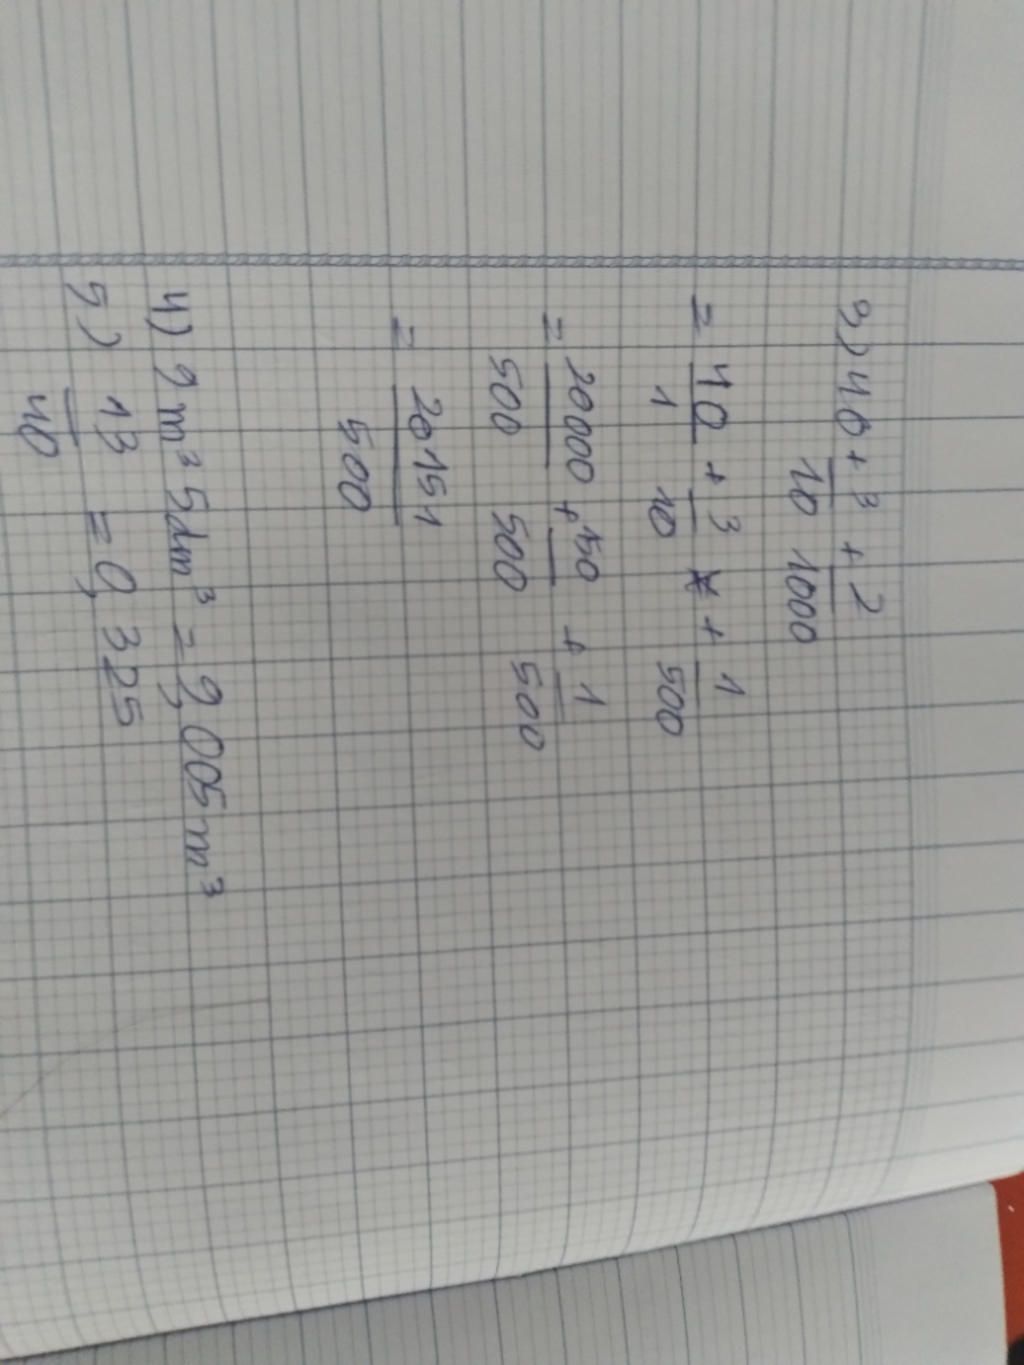 3) 40 + 3/10 + 2/1000
= 40/1 + 3/10 + 1/500
= 20000/500 + 150/500 + 1/500
= 20151/500
4) 9 m³ 5dm³ = 9,005 m³
5) 13/40 = 0,325